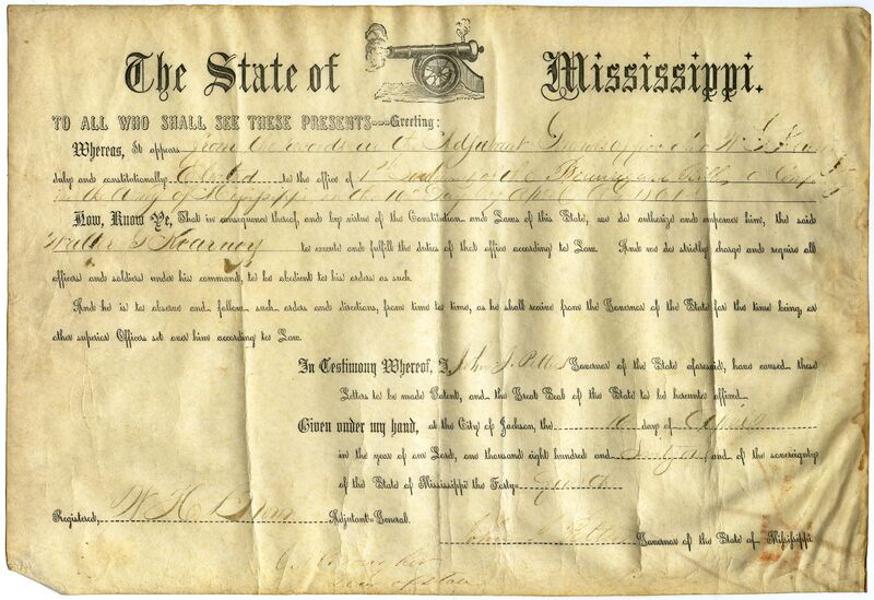 The State of Mississippi.
TO ALL WHO SHALL SEE THESE PRESENTS---Greeting:
Whereas, It appears from the records in the Adjutant Generals office that W. G. Kearney
duly and constitutionally Elected to the office of 1st of the
in the Army of Mississippi on the 10th day of April 1861
Now, Know Ye, That in consequence thereof, and by virtue of the Constitution and Laws of this State, we do authorize and empower him, the said
Walter G Kearney to execute and fulfill the duties of that office according to Law. And we do strictly charge and require all
officers and soldiers under his command, to be obedient to his orders as such.
And he is to observe and follow such orders and directions, from time to time, as he shall receive from the Governor of the State for the time being, or
other superior Officers set over him according to Law.
In Testimony Whereof, I, John J. Pettus Governor of the State aforesaid, have caused these
Letters to be made Patent, and the Great Seal of the State to be hereunto affixed.
Given under my hand, at the City of Jackson, the 10 day of
in the year of our Lord, one thousand eight hundred and and of the sovereignty
of the State of Mississippi the Forty
Registered, W. H. Adjutant-General.
John J. Pettus Governor of the State of Mississippi
Secy of State